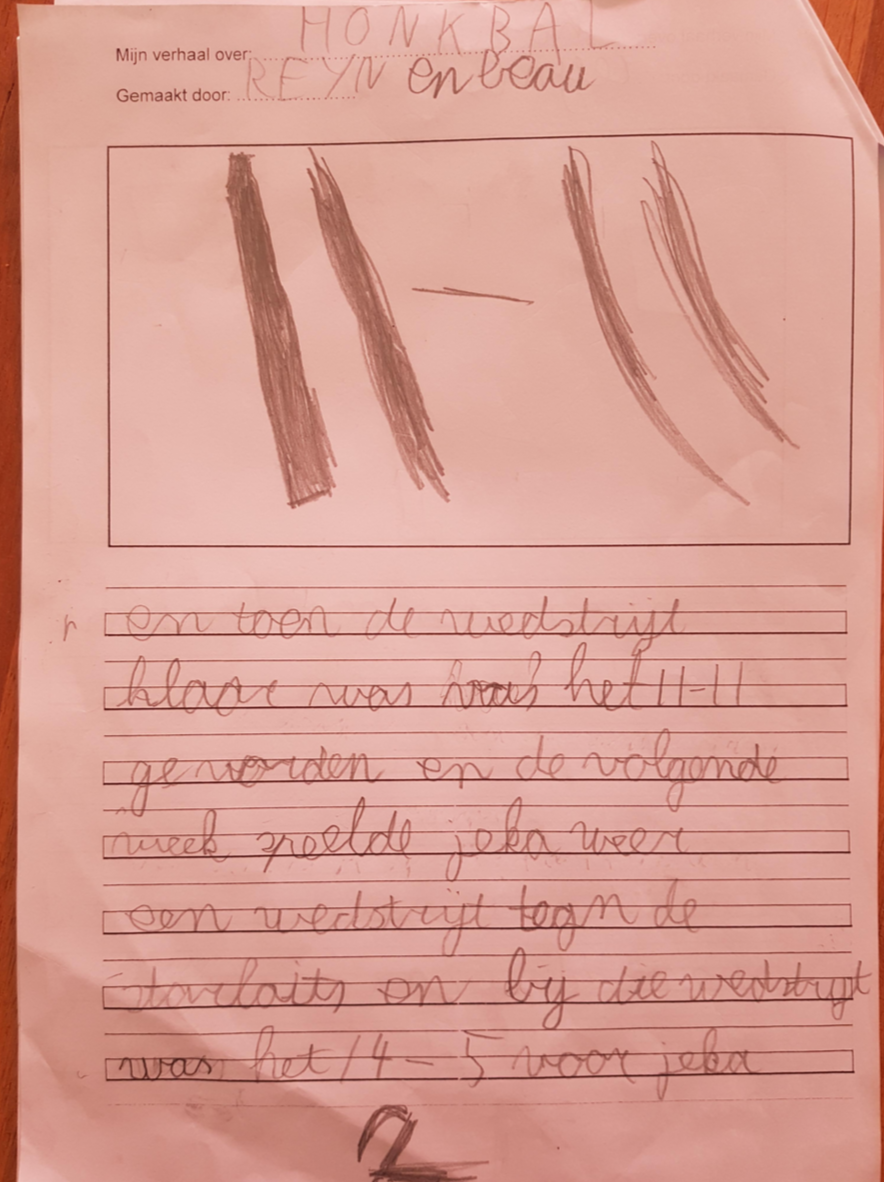 Mijn verhaal over: HONKBAL
Gemaakt door: REYN en beau
11 - 11
en toen de wedstrijt
klaar was was het 11-11
geworden en de volgende
week speelde jeka weer
een wedstrijt tegn de
starlaits en bij die wedstrijt
was het 14-5 voor jeka
2